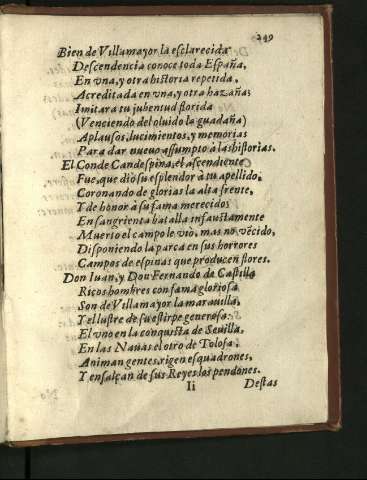 249
Bien de Villamayor la esclarecida
Descendencia conoce toda España,
En vna, y otra historia repetida,
Acreditada en vna, y otra hazaña;
Imitara tu jubentud florida
(Venciendo del oluido la guadaña)
Aplausos, lucimientos, y memorias
Para dar nueuo assumpto à las historias.
El Conde Candespina, el ascendiente
Fue, que diò su esplendor à tu apellido,
Coronando de glorias la alta frente,
Y de honor à su fama merecidos
En sangrienta batalla infaustamente
Muerto el campo le viò, mas no vècido,
Disponiendo la parca en sus horrores
Campos de espinas que producen flores.
Don Iuan, y Don Fernando de Castilla
Ricos hombres con fama gloriosa
Son de Villamayor la marauilla,
Y el lustre de su estirpe generosa:
El vno en la conquista de Seuilla,
En las Nauas el otro de Tolosa,
Animan gentes, rigen esquadrones,
Y ensalçan de sus Reyes los pendones.
Ii
Destas